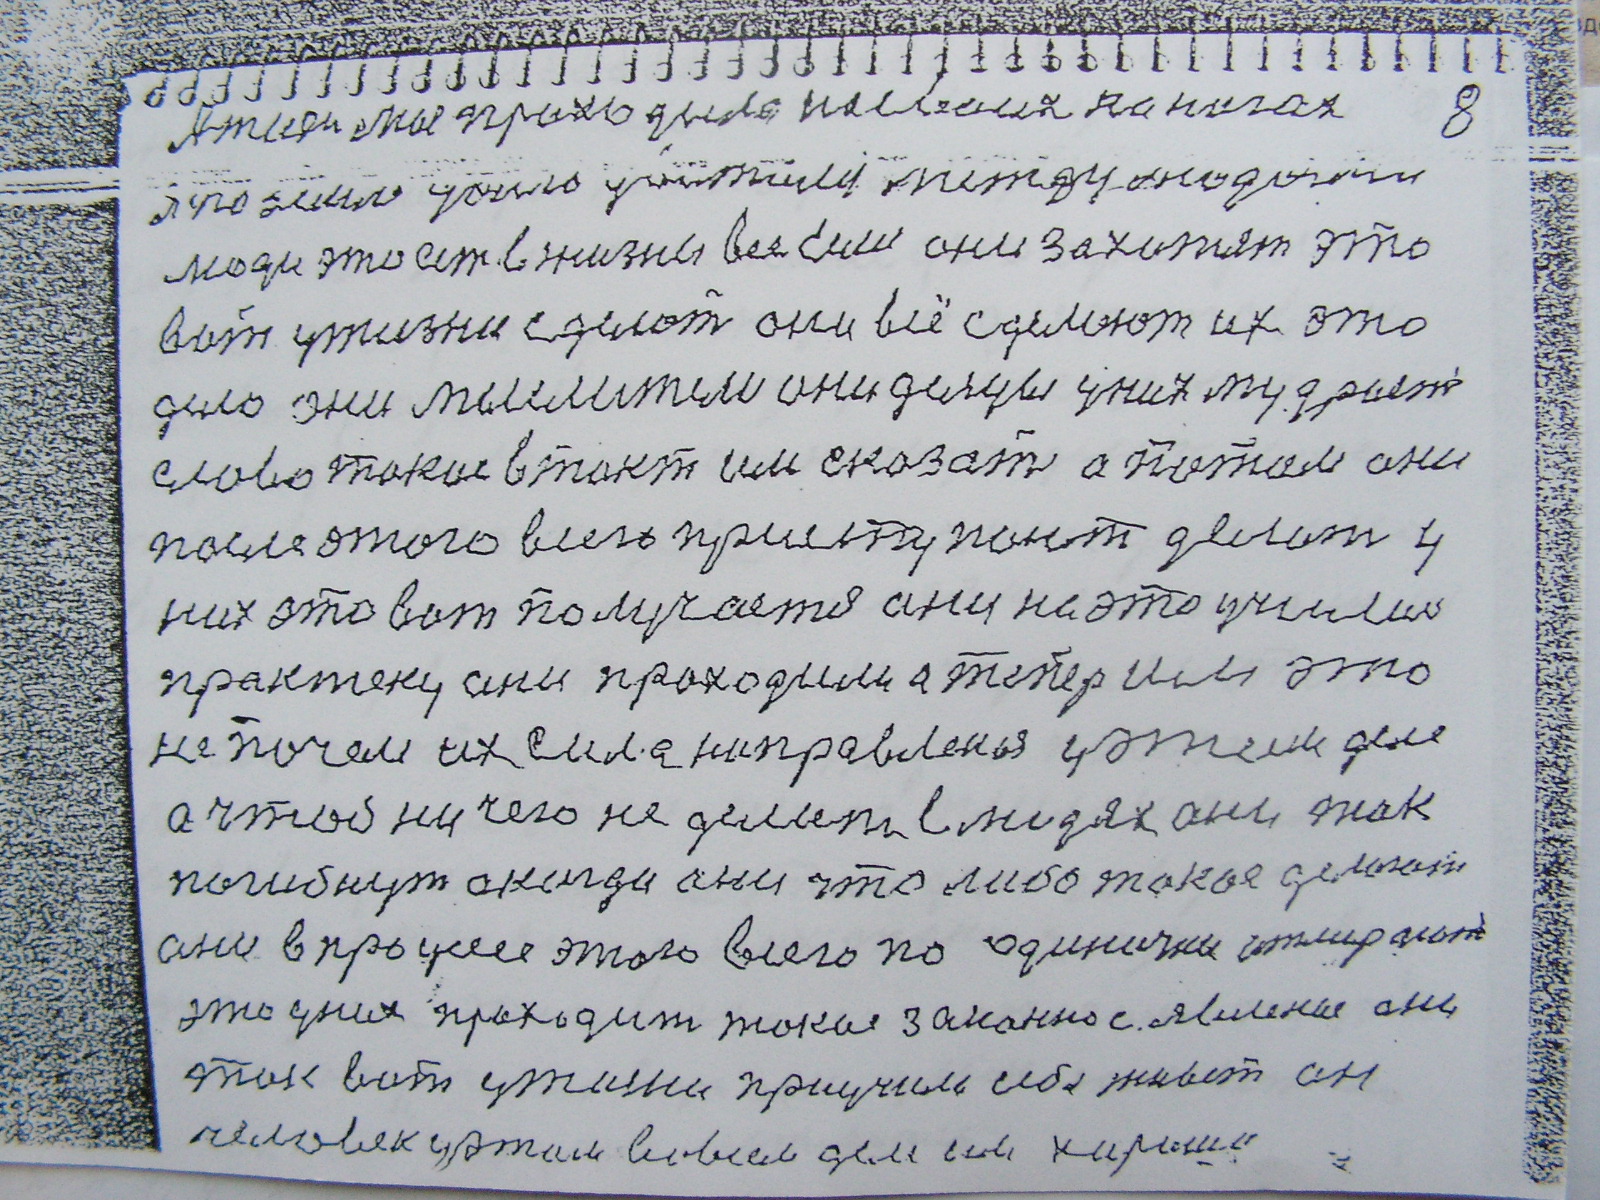 8
люди это ест в жизни все силы они захотят это
вот у жизни сделат они всё сделоют их это
дело они мыслители они делцы у них мудраст
слово такое в такт им сказат а потом они
после этого всего приступают делат у
них это вот получаетя они на это училис
практеку они проходили а тепер им это
не почем их сила направленая у этом деле
а чтоб ни чего не делат в людях они так
погибнут а когда они что либо такое делоют
они в процесе этого всего по одиночки умирают
это у них проходит такое законное явление они
так вот у жизни приучили себя живт он
человек у этом во всем